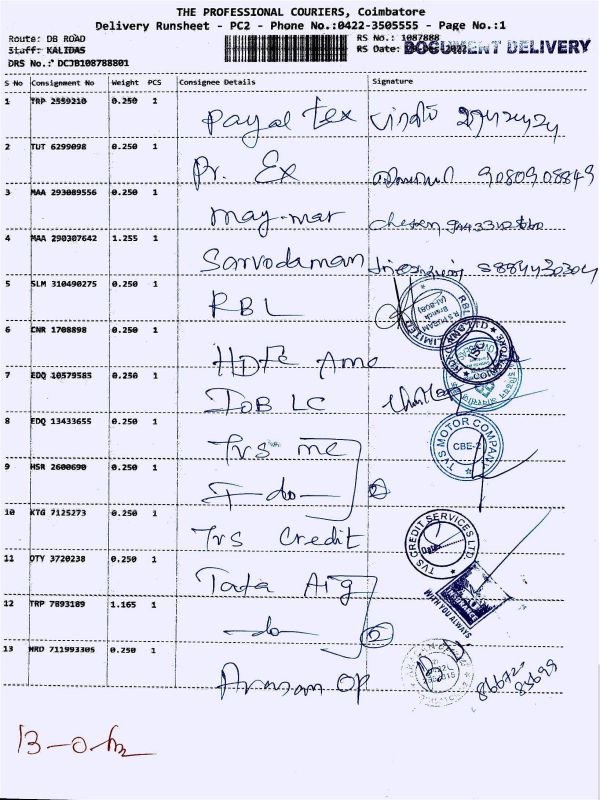 THE PROFESSIONAL COURIERS, Coimbatore
Delivery Runsheet - PC2 - Phone No.:0422-3505555 - Page No.:1
Route: DB ROAD
RS No.: 1087888
Staff: KALIDAS
RS Date:
DOCUMENT DELIVERY
DRS No.: DCJB108788801
S No Consignment No Weight PCS Consignee Details Signature
1 TRP 2559210 0.250 1 Payal tex
2 TUT 6299098 0.250 1 Pr. Ex 9080908849
3 MAA 293089556 0.250 1 may-mar
4 MAA 290307642 1.255 1 Sarvodaman
5 SLM 310490275 0.250 1 RBL
6 CNR 1708898 0.250 1 HDFC Amc
7 EDQ 10579585 0.250 1 IOB LC
8 EDQ 13433655 0.250 1 Tvs mc
TVS MOTOR COMPANY
CBE-2
9 HSR 2600690 0.250 1 -do- 2
10 KTG 7125273 0.250 1 Tvs Credit
TVS CREDIT SERVICES LTD.
Date:
11 OTY 3720238 0.250 1 Tata Aig
12 TRP 7893189 1.165 1 -do- 2
WITH YOU ALWAYS
13 MRD 711993305 0.250 1 Arasan OP